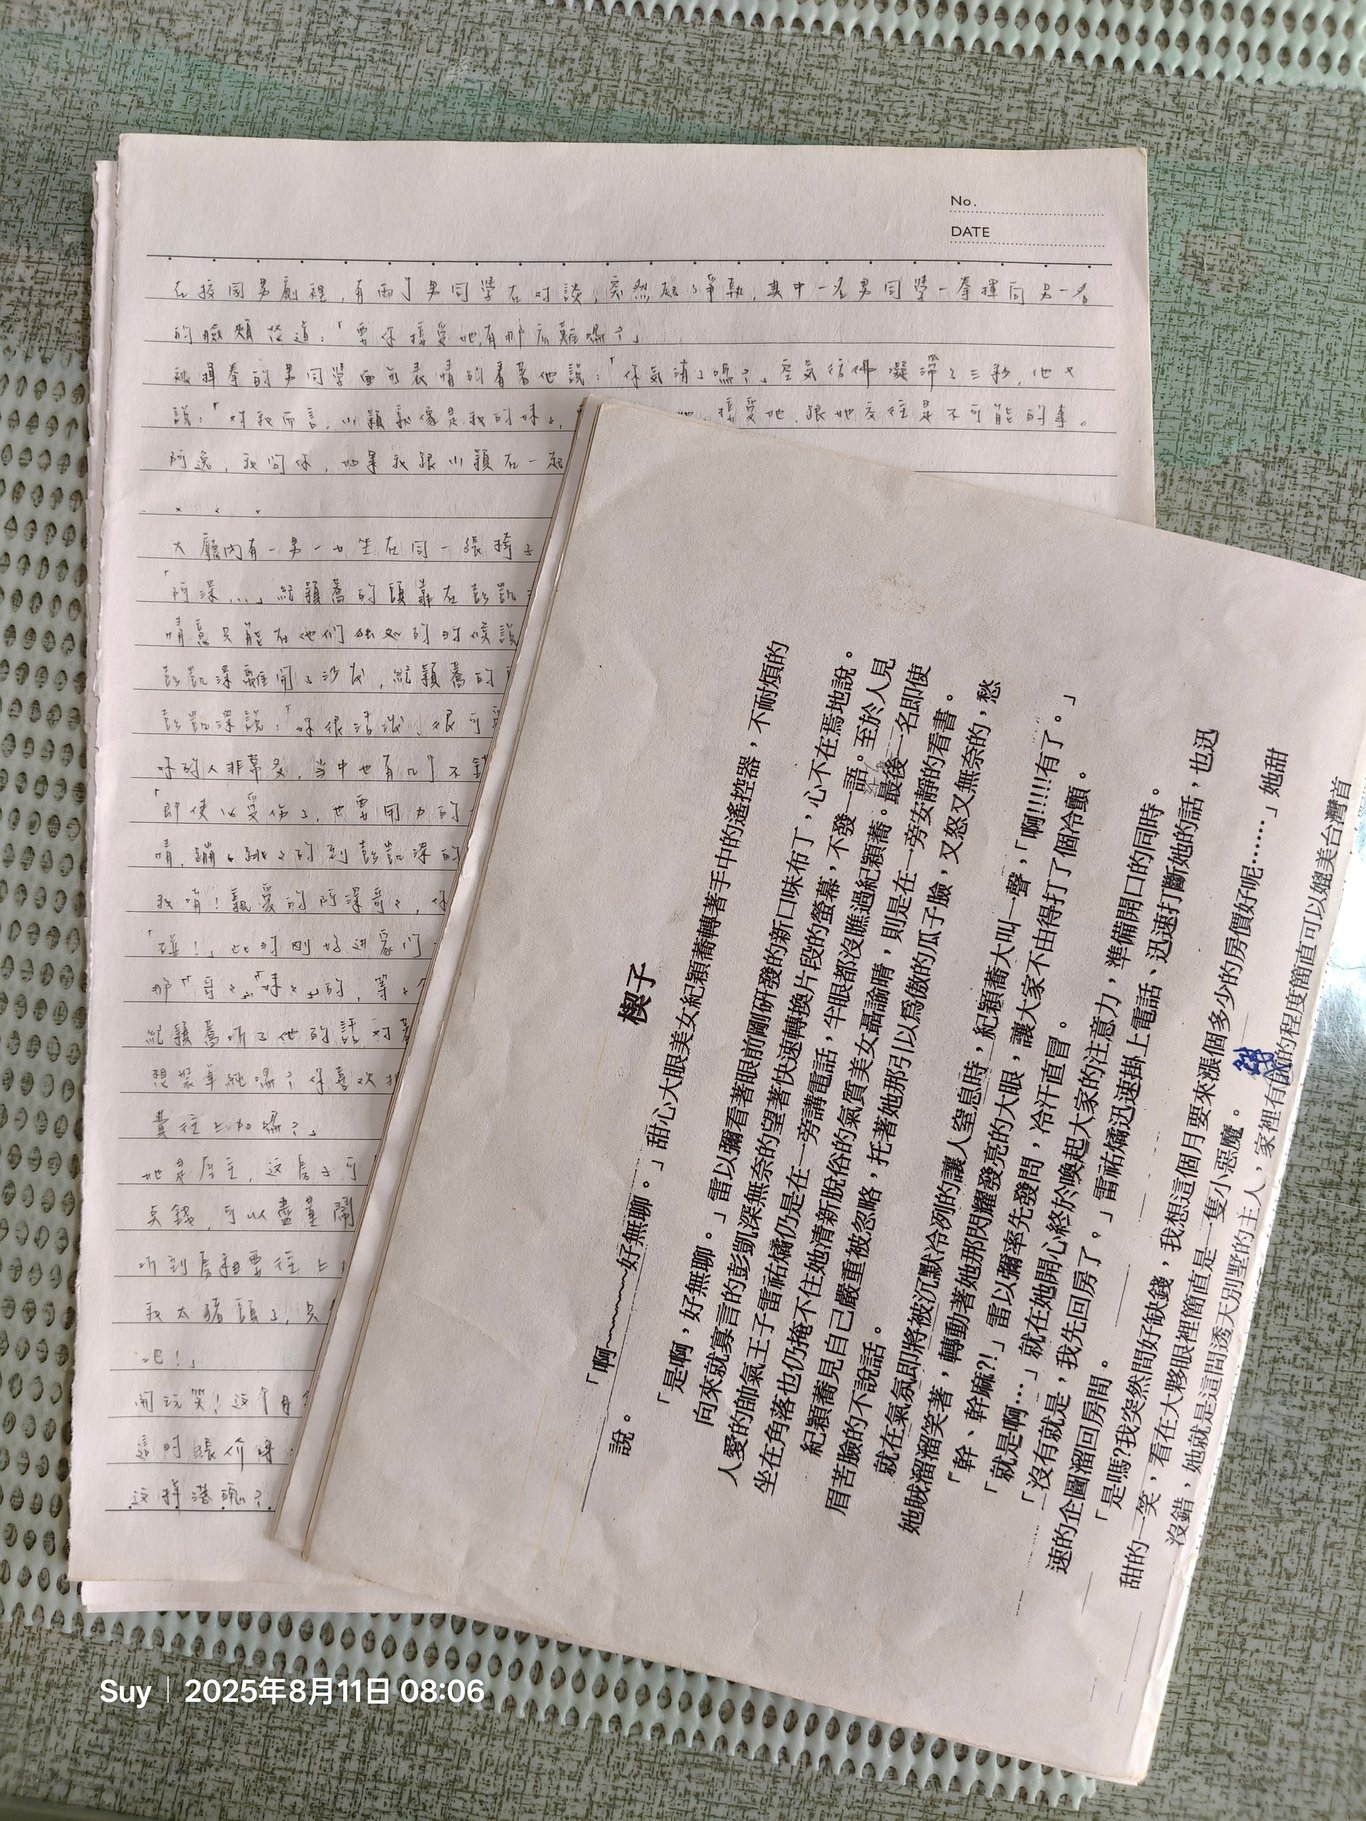 No.
DATE
在校園男廁裡,有兩个男同學在对談,突然起了爭執,其中一名男同學一拳揮向另一名
的臉頰並道:「要你接受她,有那麼難嗎?」
被揮拳的男同學面前表情的看著他說:「你气消了嗎?」空気彷彿凝滯了三秒,他又
說:「对我而言,小穎就像是我的妹
接受她.跟她交往是不可能的事。
阿逸,我问你,如果我跟小穎在一起
. . .
大廳內有一男一女坐在同一張椅子
「阿深...」紀穎蕎的頭靠在彭凱
情意只能在他們
彭凱深離開了沙发,紀穎蕎的
彭凱深說:「妳很活泼、很可
妳的人非常多,当中也有几个不錯
「即使心受伤了,也要用力的
晴,蹦々跳々的到彭凱深的
我唷!親愛的阿深哥々,你
「碰!」此时刚好进家门
那「哥々」「妹々」的,等々
紀穎蕎听了他的話对著
想裝单純嗎?你喜欢
費往上加嗎?」
她是房主,这房子可
点錢,可以盡量鬧
听到房租要往上
我太骚頭了,只
吧!」
開玩笑!这个月
這时張介
这样港覷?
楔子
「啊~~~~~好無聊。」甜心大眼美女紀穎蕎轉著手中的遙控器,不耐煩的
說。
「是啊,好無聊。」雷以彌看著眼前剛研發的新口味布丁,心不在焉地說。
向來就寡言的彭凱深無奈的望著快速轉換片段的螢幕,不發一語。至於人見
人愛的帥氣王子雷祐燏仍是在一旁講電話,半眼都沒瞧過紀穎蕎。最後一名即使
坐在角落也仍掩不住她清新脫俗的氣質美女聶諭晴,則是在一旁安靜的看書。
紀穎蕎見自己嚴重被忽略,托著她那引以為傲的瓜子臉,又怒又無奈的,愁
眉苦臉的不說話。
就在氣氛即將被沉默冷冽的讓人窒息時,紀穎蕎大叫一聲,「啊!!!!!有了。」
她賊溜溜笑著,轉動著她那閃耀發亮的大眼,讓大家不由得打了個冷顫。
「幹、幹嘛?!」雷以彌率先發問,冷汗直冒。
「就是啊…」就在她開心終於喚起大家的注意力,準備開口的同時。
「沒有就是,我先回房了。」雷祐燏迅速掛上電話、迅速打斷她的話,也迅
速的企圖溜回房間。
「是嗎?我突然間好缺錢,我想這個月要來漲個多少的房價好呢……」她甜
甜的一笑,看在大夥眼裡簡直是一隻小惡魔。
沒錯,她就是這間透天別墅的主人,家裡有錢的程度簡直可以媲美台灣首
Suy 2025年8月11日 08:06